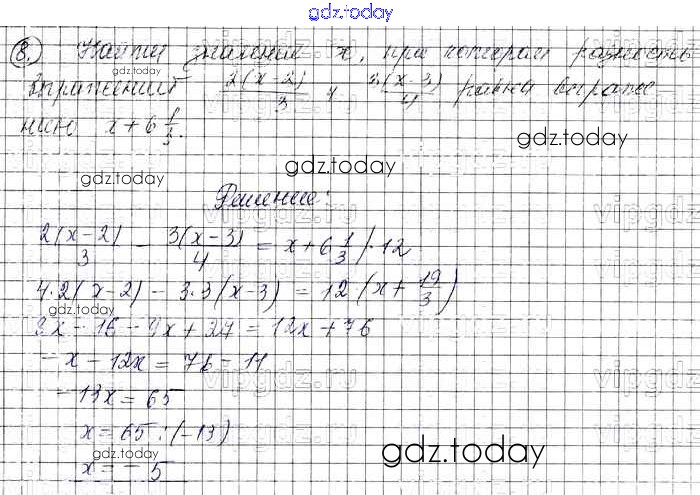 gdz.today
8. Найти значения x, при котором разность
gdz.today
выражений 2(x-2)/3 и 3(x-3)/4 равна выраже
нию x+6 1/3.
gdz.today
gdz.today
gdz.today
Решение:
vipgdz.ru
2(x-2)/3 - 3(x-3)/4 = x+6 1/3 /·12
4·2(x-2) - 3·3(x-3) = 12(x+19/3)
gdz.today
8x-16-9x+27=12x+76
-x-12x=76-11
vipgdz.ru
-13x=65
x=65:(-13)
gdz.today
gdz.today
x=-5